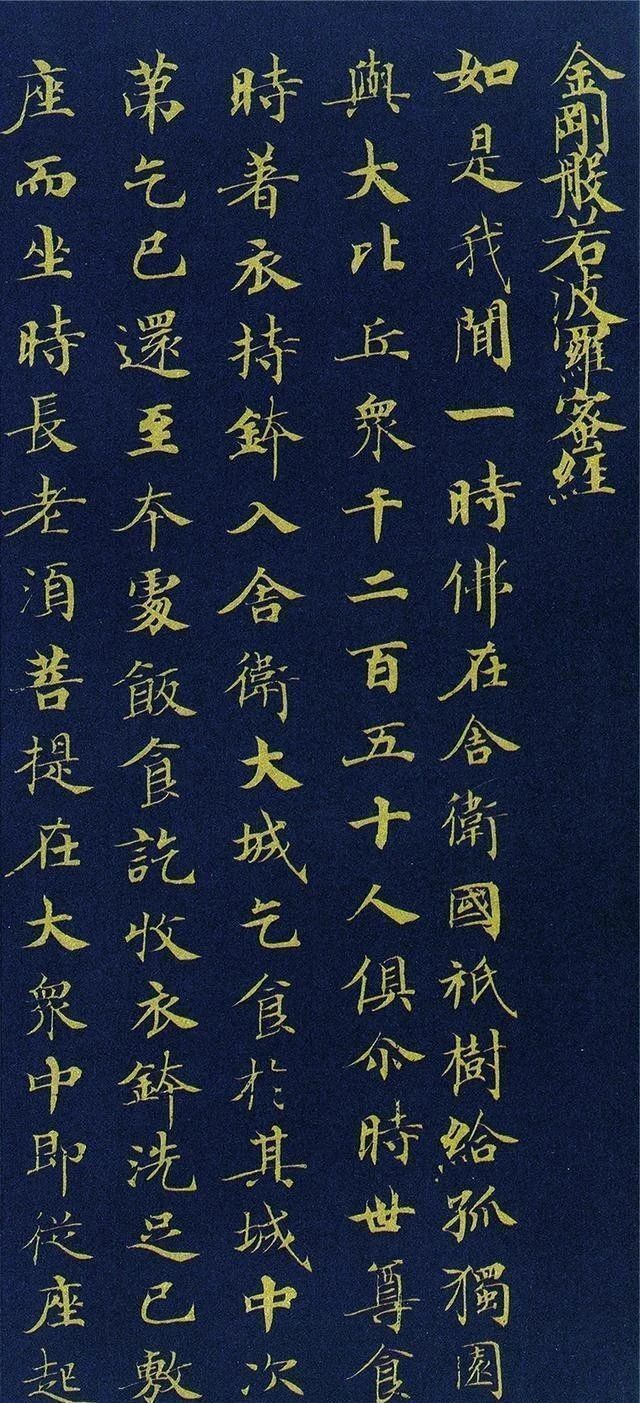 金剛般若波羅蜜經
如是我聞一時佛在舍衛國祇樹給孤獨園
與大比丘衆千二百五十人俱尒時世尊食
時著衣持鉢入舍衛大城乞食於其城中次
苐乞已還至本處飯食訖收衣鉢洗足已敷
座而坐時長老湏菩提在大衆中即從座起